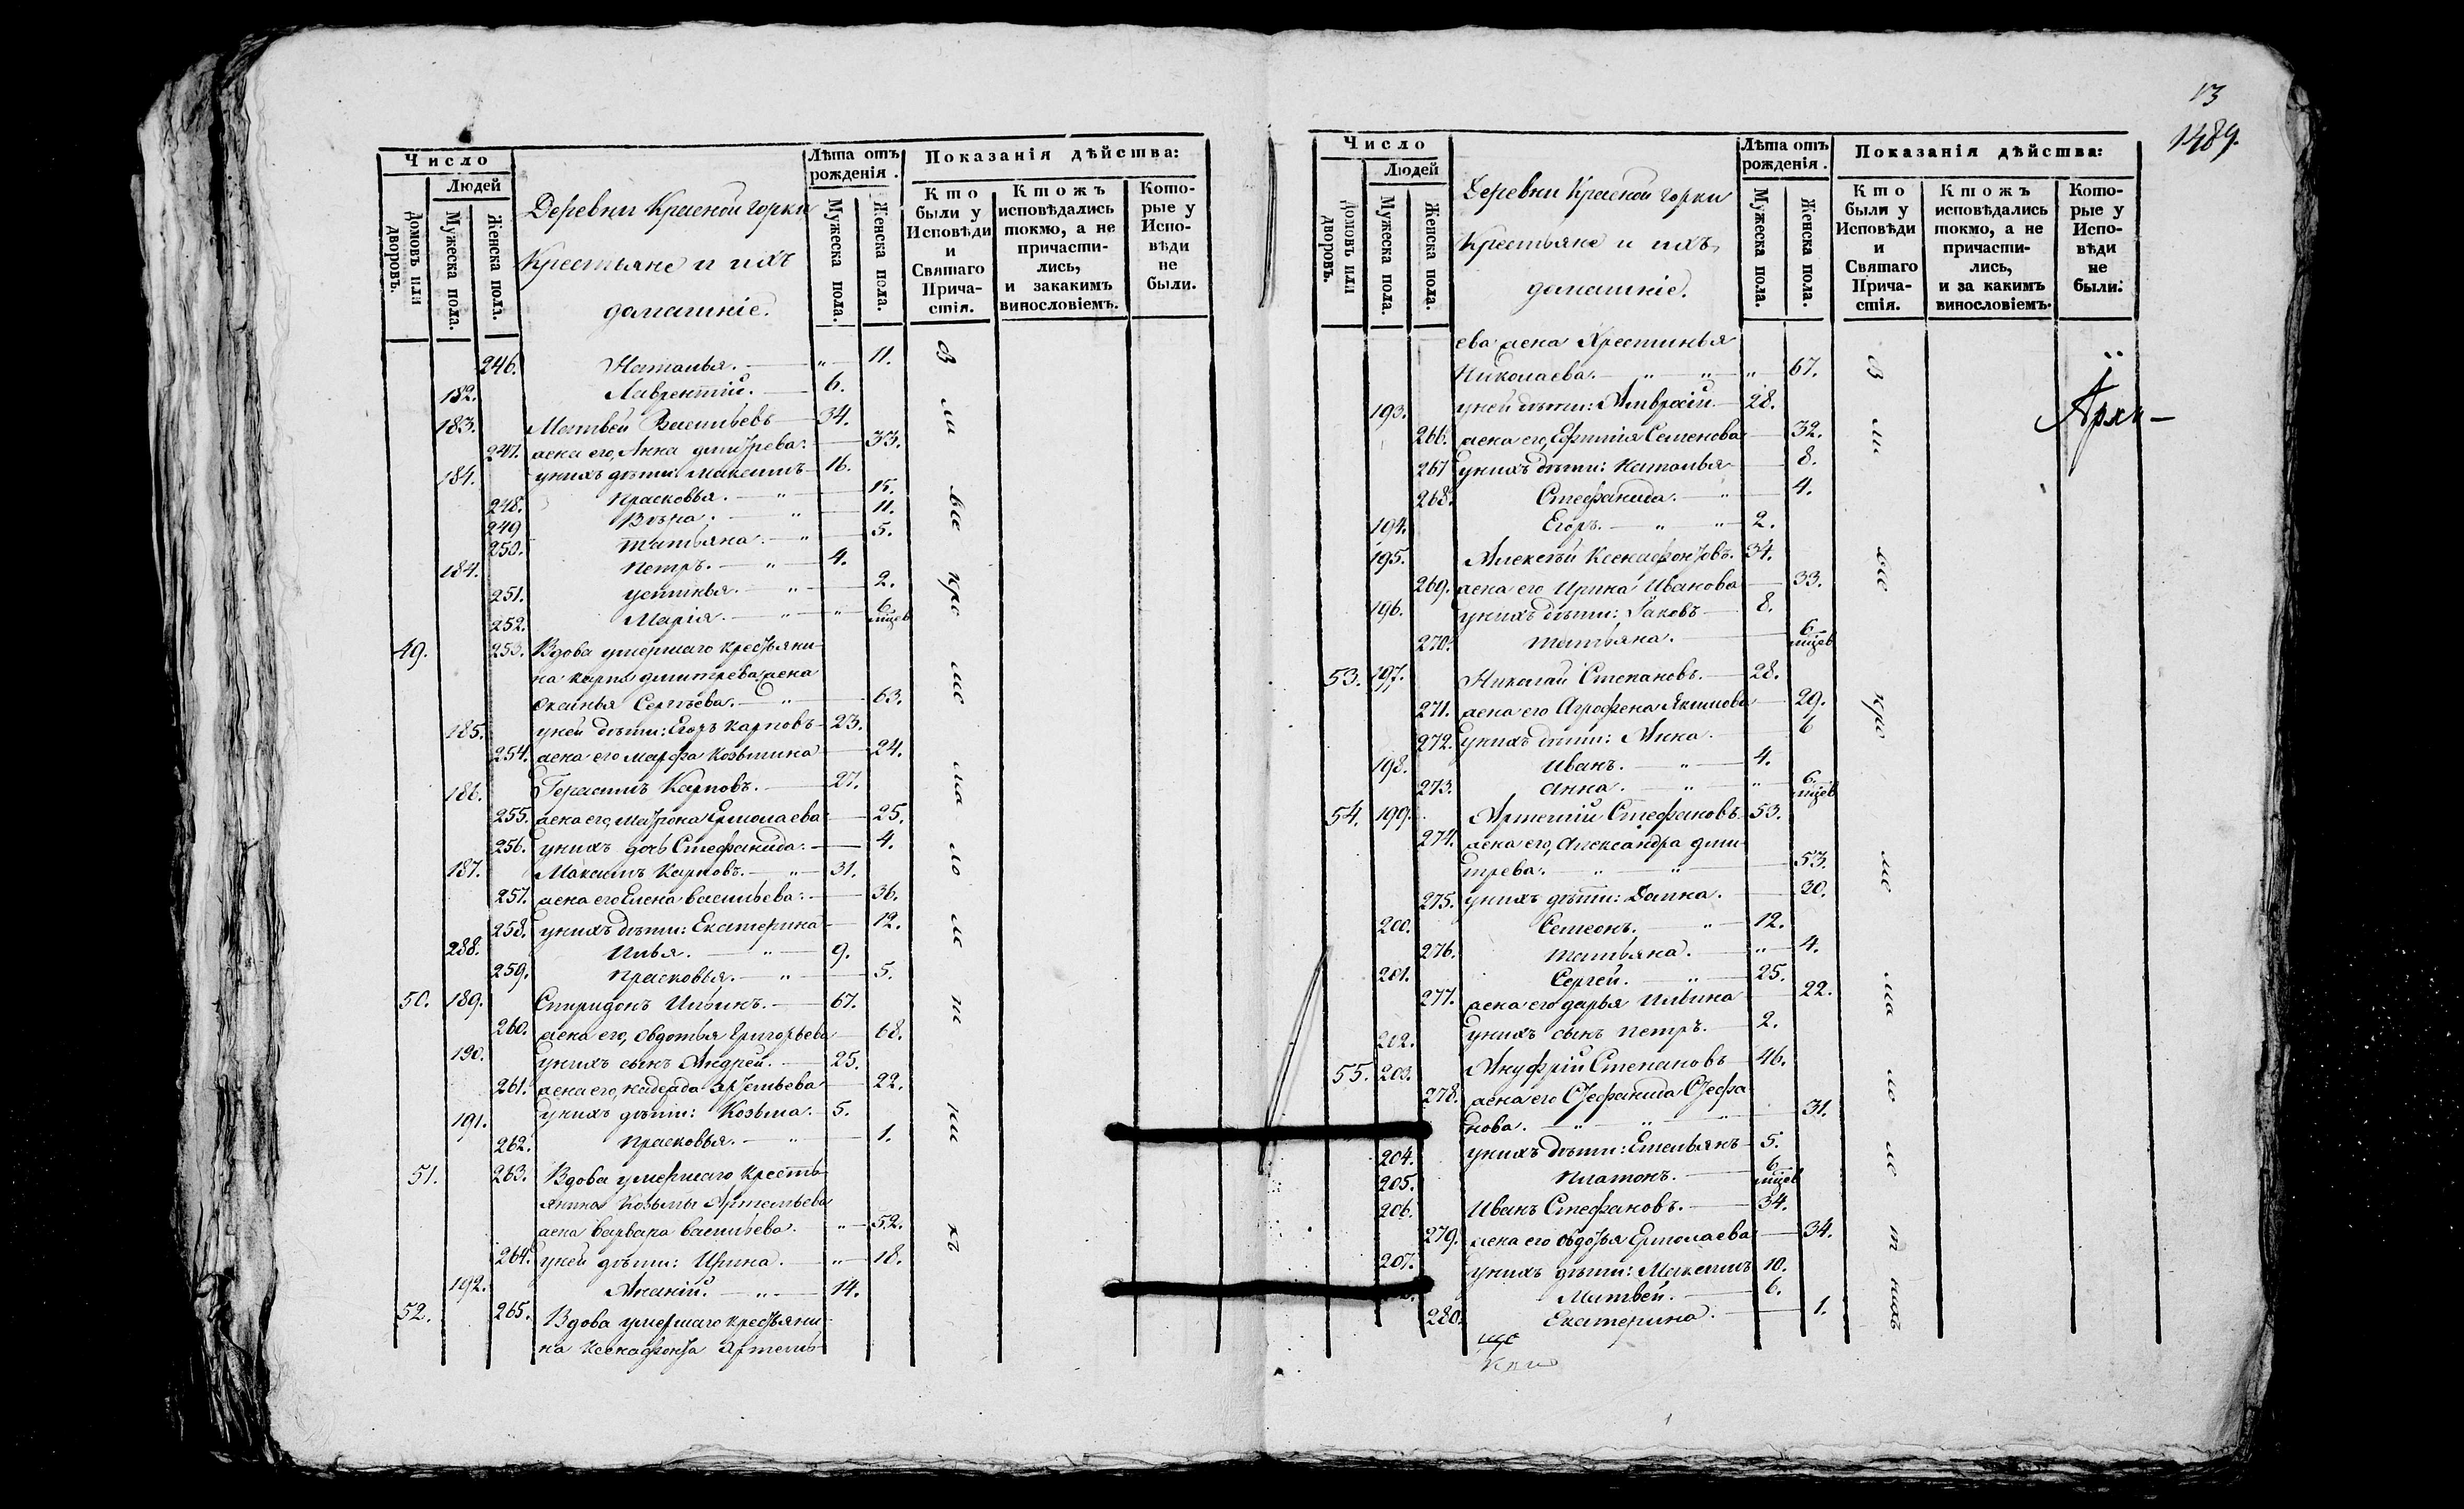 13
1489.
Число
Людей
Домовъ или дворовъ.
Мужеска пола.
Женска пола.
Деревни Красной горки
Крестьяне и ихъ
домашніе.
Лѣта отъ рожденія.
Мужеска пола.
Женска пола.
Показанія дѣйства:
Кто были у Исповѣди и Святаго Причастія.
Ктожъ исповѣдались токмо, а не причастились, и закакимъ винословіемъ.
Которые у Исповѣди не были.
246. Наталья. " 11.
182. Лаврентій. 6.
183. Матвей Васильевъ 34.
247. жена его, Анна дмитрева. 33.
184. унихъ дѣти: Максимъ 16.
248. Прасковья. " 15.
249 Вѣра. " 11.
250. Татьяна. " 5.
184. Петръ. " 4.
251. устинья. " 2.
252. Марія. " " 6 мцев
49. 253. Вдова умершаго крестьяни-
на карпа дмитрева жена
Оксинья Сергѣева. " 63.
185. уней дѣти: Егоръ Карповъ 23.
254. жена его марфа Козьмина 24.
186. Герасимъ Карповъ. 27.
255. жена его, матрона Ермолаева 25.
256. унихъ дочь Стефанида. 4.
187. Максимъ Карповъ. " 31.
257. жена его Елена васильева. 36.
258. унихъ дѣти: Екатерина 12.
288. Илья. " 9.
259. Прасковья. " 5.
50. 189. Спиридонъ Ильинъ. 67.
260. жена его, Овдотья Григорьева 68.
190. унихъ сынъ Андрей. 25.
261. жена его, надежда Артемьева 22.
191. унихъ дѣти: Козьма. 5.
262. Прасковья. " 1.
51. 263. Вдова умершаго кресть
янина Козьмы Артемьева
жена варвара васильева. " 52.
264. уней дѣти: Ирина. " 18.
192. Ананій. " 14.
52. 265. Вдова умершаго крестьяни-
на Ксенафонта Артемь
Число
Людей
Домовъ или дворовъ.
Мужеска пола.
Женска пола.
Деревни Красной горки
Крестьяне и ихъ
домашніе.
Лѣта отъ рожденія.
Мужеска пола.
Женска пола.
Показанія дѣйства:
Кто были у Исповѣди и Святаго Причастія.
Ктожъ исповѣдались токмо, а не причастились, и за какимъ винословіемъ.
Которые у Исповѣди не были.
ева жена Хрестинья
Николаева. " " " 67.
193. уней дѣти: Амвросій 28.
266. жена его, Ефимія Семенова 32.
267 унихъ дѣти: Наталья 8.
268. Стефанида. " 4.
194. Егоръ. " " 2.
195. Алексѣй Ксенафонтовъ. 34.
269. жена его Ирина Иванова 33.
196. унихъ дѣти: Яковъ 8.
270. татьяна. 6 мцев
53. 197. Николай Степановъ. 28.
271. жена его Агрофена Якимова 29.
272. унихъ дѣти: Анна. 6
198. Иванъ. " 4.
273. анна. " " 6. мцев
54. 199. Артемій Стефановъ 53.
274. жена его, Александра дми-
трева. " " 53.
275. унихъ дѣти: Домна. 30.
200. Семеонъ. " 12.
276. татьяна. " 4.
201. Сергей. " 25.
277. жена его дарья Ильина 22.
202. унихъ сынъ петръ. 2.
55. 203. Ануфрій Степановъ 46.
278. жена его Стефанида Стефа
нова. " " " 31.
204. унихъ дѣти: Емельянъ 5.
205. Платонъ. 6 мцев
206. Иванъ Стефановъ. 34.
279. жена его овдотья Ермолаева 34.
207. унихъ дѣти: Максимъ 10.
Матвей. 6.
280. Екатерина. 1.
Архи-